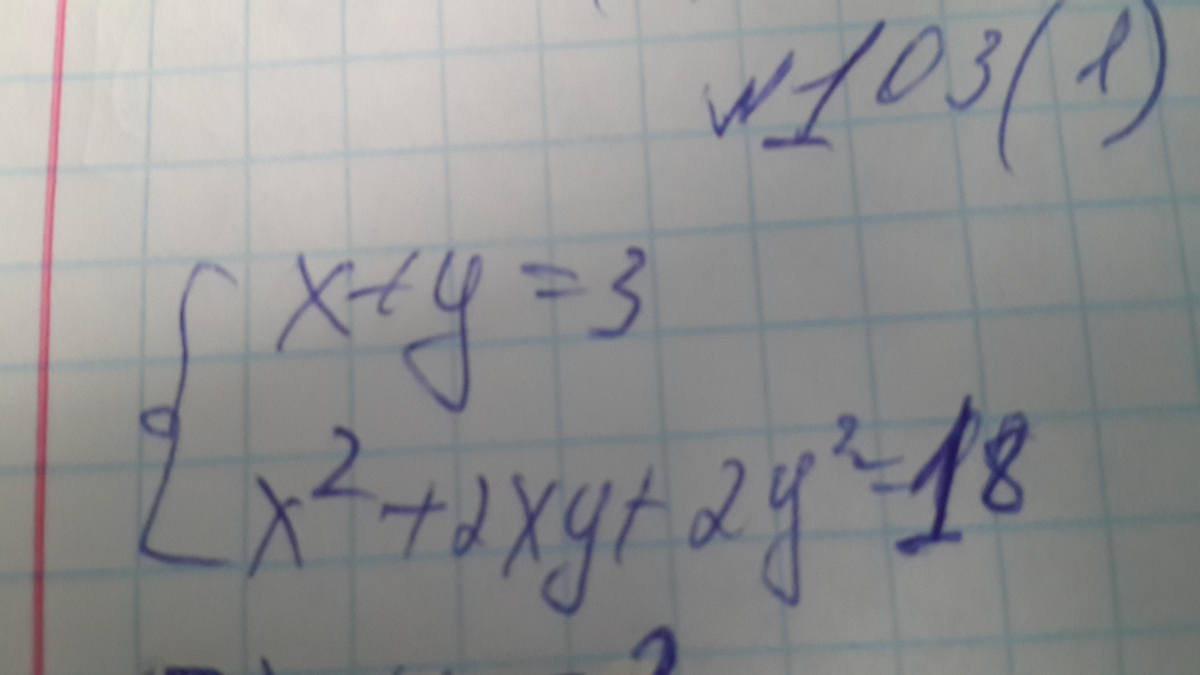 №103(1)
x+y=3
x²+2xy+2y²=18